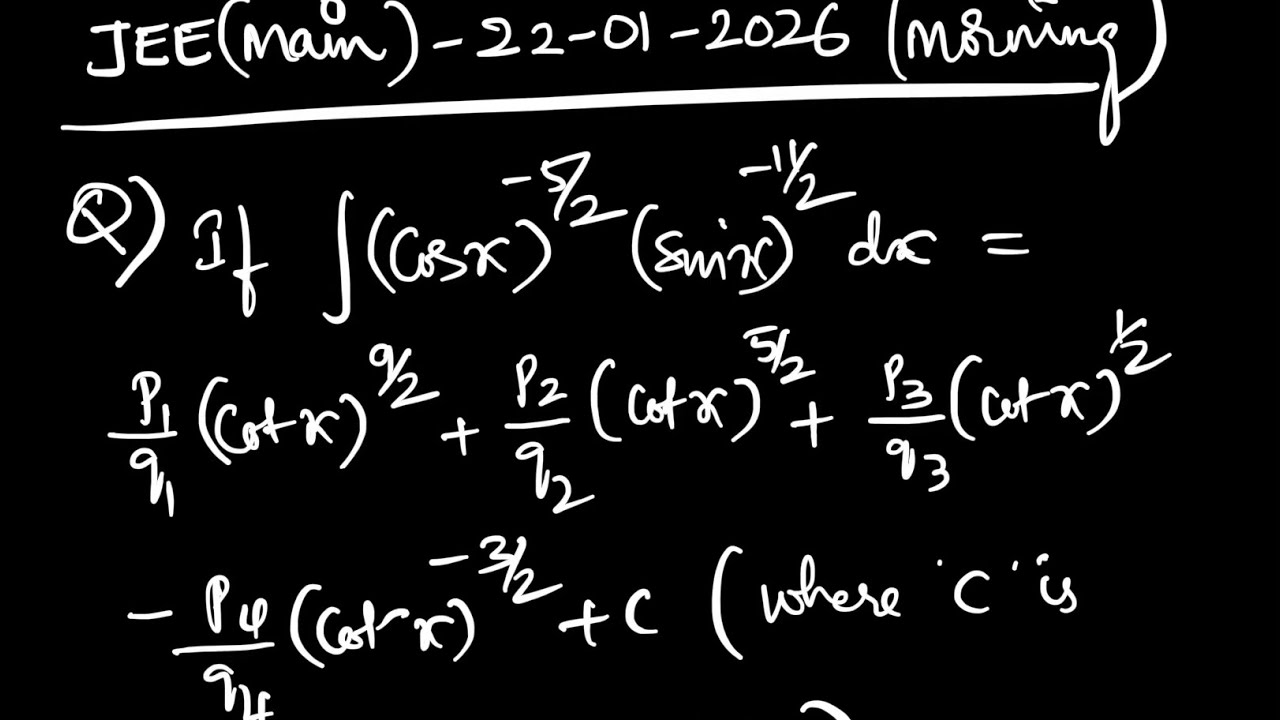 JEE(Main) - 22-01-2026 (Morning)
Q) If ∫(Cosx)^{-5/2} (sinx)^{-11/2} dx =
P₁/q₁ (Cotx)^{9/2} + P₂/q₂ (Cotx)^{5/2} + P₃/q₃ (Cotx)^{1/2}
- P₄/q₄ (Cotx)^{-3/2} + C (where 'C' is
)